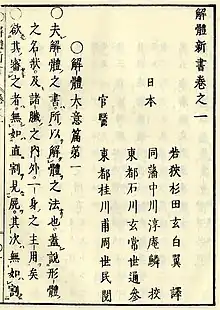 解體新書卷之一
若狹 杉田玄白翼 譯
日本 同藩 中川淳庵鱗 挍
東都 石川玄常世通 參
官醫 東都 桂川甫周世民 閱
○解體大意篇第一
○夫解體之書所以解體之法也蓋說形體
之名狀及諸臟之內外一身之主用矣
○欲其審之者無如直割見屍其次無如割